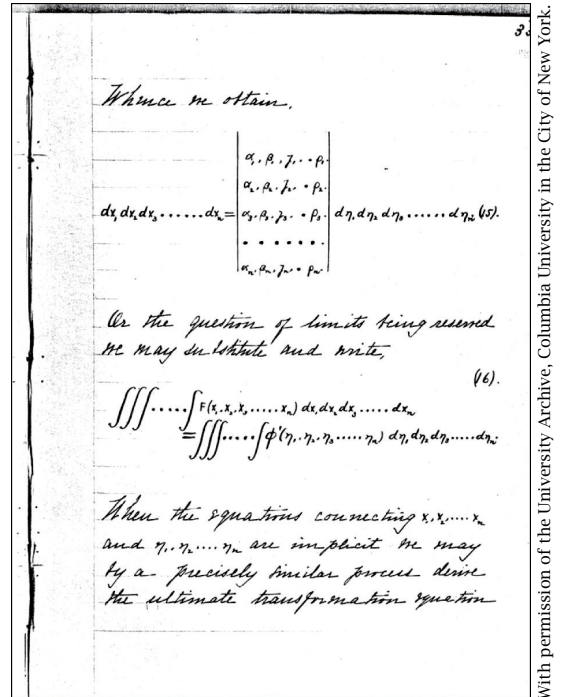 33
Whence we obtain,
α₁, β₁, γ₁, · · ρ₁,
α₂, β₂, γ₂, · ρ₂.
dx₁ dx₂ dx₃ ...... dxₙ = α₃, β₃, γ₃. · ρ₃. dη₁ dη₂ dη₃ ...... dηₙ. (15).
. . . . . . .
αₙ, βₙ, γₙ. · ρₙ.
Or the question of limits being reserved
we may substitute and write,
(16).
∫∫∫ ..... ∫ F(x₁, x₂, x₃ ...... xₙ) dx₁ dx₂ dx₃ ..... dxₙ
= ∫∫∫ ..... ∫ φ'(η₁, η₂, η₃ ..... ηₙ) dη₁ dη₂ dη₃ ..... dηₙ.
When the equations connecting x₁, x₂, .... xₙ
and η₁, η₂ .... ηₙ are implicit we may
by a precisely similar process derive
the ultimate transformation equation
With permission of the University Archive, Columbia University in the City of New York.